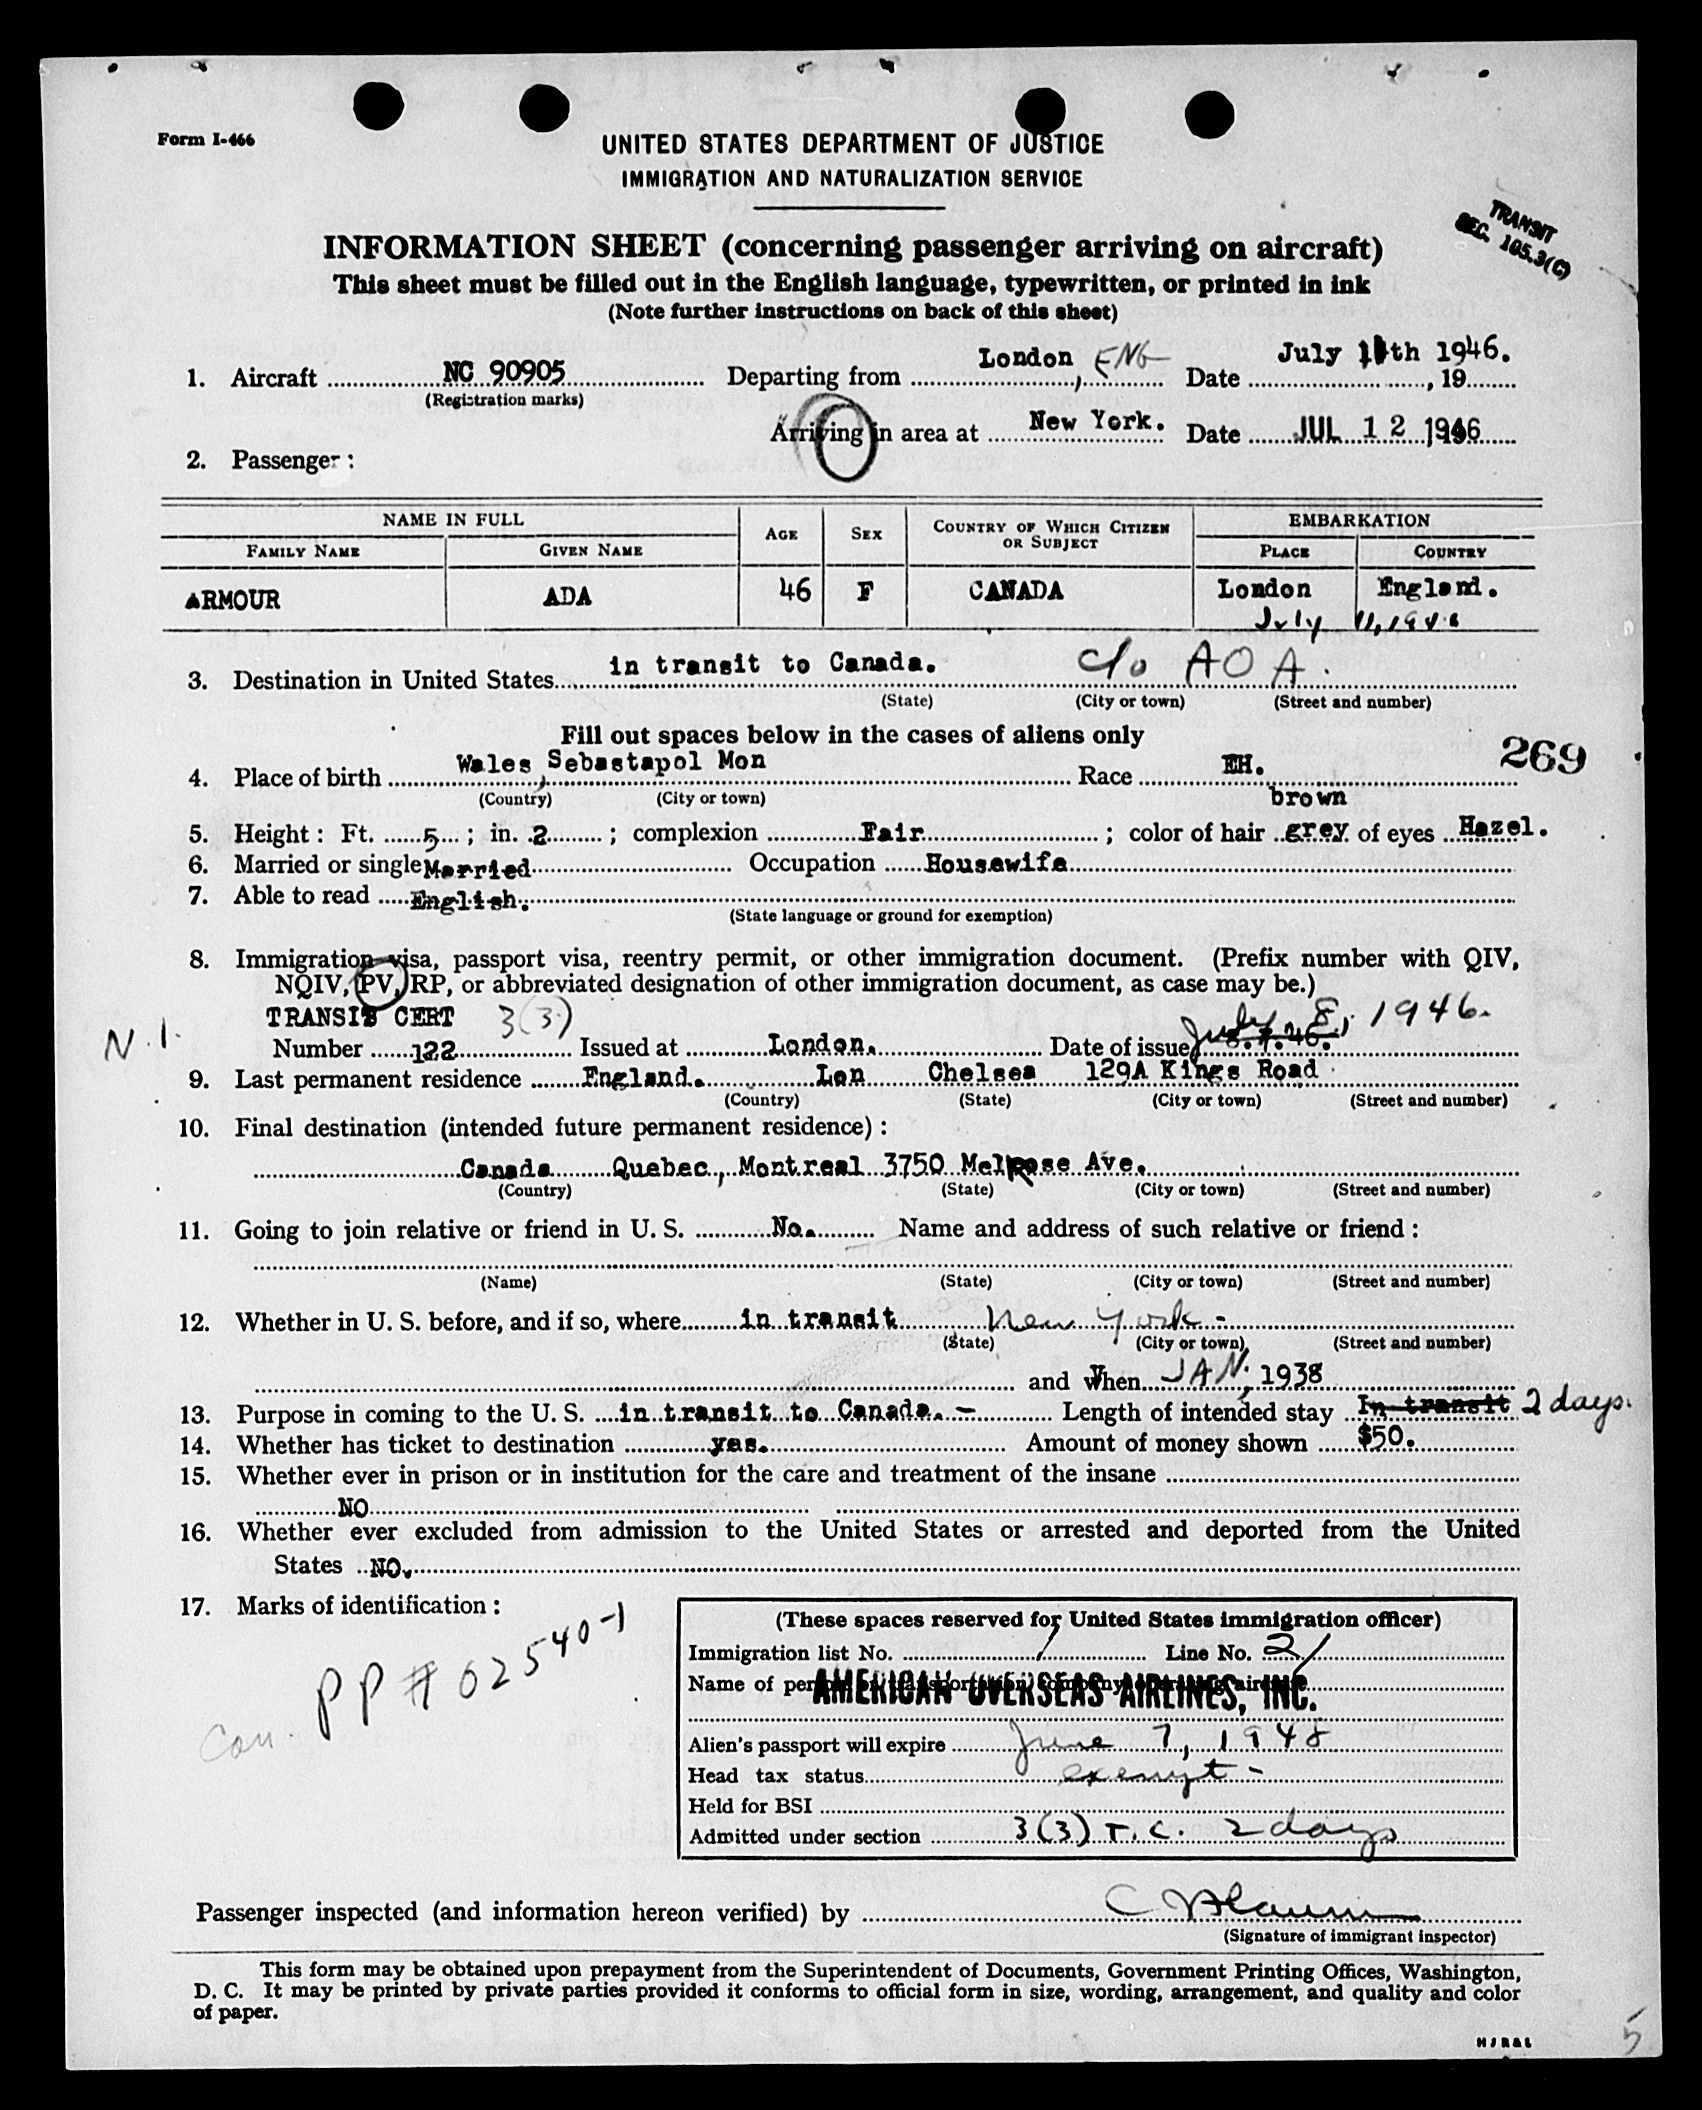 Form I-466
UNITED STATES DEPARTMENT OF JUSTICE
IMMIGRATION AND NATURALIZATION SERVICE
TRANSIT
SEC. 105.3(C)
INFORMATION SHEET (concerning passenger arriving on aircraft)
This sheet must be filled out in the English language, typewritten, or printed in ink
(Note further instructions on back of this sheet)
1. Aircraft NC 90905 Departing from London, ENG Date July 11th 1946. , 19
(Registration marks)
Arriving in area at New York. Date JUL 12 1946
2. Passenger:
NAME IN FULL AGE SEX COUNTRY OF WHICH CITIZEN OR SUBJECT EMBARKATION
FAMILY NAME GIVEN NAME PLACE COUNTRY
ARMOUR ADA 46 F CANADA London England.
July 11, 1946
3. Destination in United States in transit to Canada. c/o AOA.
(State) (City or town) (Street and number)
Fill out spaces below in the cases of aliens only
269
4. Place of birth Wales, Sebastapol Mon Race EH.
(Country) (City or town)
brown
5. Height: Ft. 5; in. 2; complexion Fair; color of hair grey of eyes Hazel.
6. Married or single Married Occupation Housewife
7. Able to read English.
(State language or ground for exemption)
8. Immigration visa, passport visa, reentry permit, or other immigration document. (Prefix number with QIV,
NQIV, PV, RP, or abbreviated designation of other immigration document, as case may be.)
TRANSIT CERT 3(3) July 8, 1946.
N.I.
Number 122 Issued at London. Date of issue 8.7.46.
9. Last permanent residence England. Lon Chelsea 129A Kings Road
(Country) (State) (City or town) (Street and number)
10. Final destination (intended future permanent residence):
Canada Quebec, Montreal 3750 Melrose Ave.
(Country) (State) (City or town) (Street and number)
11. Going to join relative or friend in U. S. No. Name and address of such relative or friend:
(Name) (State) (City or town) (Street and number)
12. Whether in U. S. before, and if so, where in transit New York -
(State) (City or town) (Street and number)
and When JAN, 1938
13. Purpose in coming to the U. S. in transit to Canada. - Length of intended stay In transit 2 days.
14. Whether has ticket to destination yes. Amount of money shown $50.
15. Whether ever in prison or in institution for the care and treatment of the insane
NO
16. Whether ever excluded from admission to the United States or arrested and deported from the United
States NO.
17. Marks of identification:
Can. PP # 02540-1
(These spaces reserved for United States immigration officer)
Immigration list No. 1 Line No. 21
Name of person or transportation company operating aircraft
AMERICAN OVERSEAS AIRLINES, INC.
Alien's passport will expire June 7, 1948
Head tax status exempt -
Held for BSI
Admitted under section 3(3) T.C. 2 days
Passenger inspected (and information hereon verified) by
(Signature of immigrant inspector)
This form may be obtained upon prepayment from the Superintendent of Documents, Government Printing Offices, Washington,
D. C. It may be printed by private parties provided it conforms to official form in size, wording, arrangement, and quality and color
of paper.
5